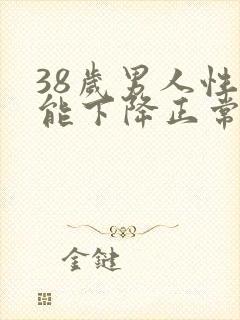 38歲男人性
能下降正常
金鍵